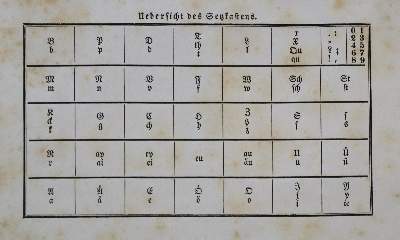 Uebersicht des Setzkastens.
B P D T L x . : 0 1
b p d th l X 2 3
t Qu 4 5
qu ! , 6 7
8 9
M N V F W Sch St
m n v f w sch st
K G C H Z S ſ
k g ch h z ſ s
ck
R ay ey eu au U Ü
r ai ei äu u ü
A Ä E Ö O J Y
a ä e ö o j y
i ie